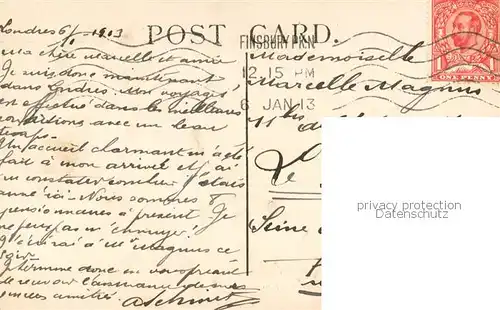 POST CARD.
Londres 6/1 - 1913
Ma chère Marcelle et amie
Je suis donc maintenant
dans Londres. Mon voyage s'
est effectué dans les meilleures
conditions avec un beau
temps.
Un accueil charmant m'a été
fait à mon arrivée et j'ai
pu constater combien j'étais
aimé ici. Nous sommes 8
pensionnaires à présent. Je
ne peux pas m'ennuyer!
J'écrirai à Mr Magnus ce
soir.
Je termine donc en vous priant
de recevoir l'assurance de mes
sincères amitiés.
FINSBURY PK.N
12.15 PM
6 JAN 13
ONE PENNY
Mademoiselle
Marcelle Magnus
Le
Seine
privacy protection
Datenschutz